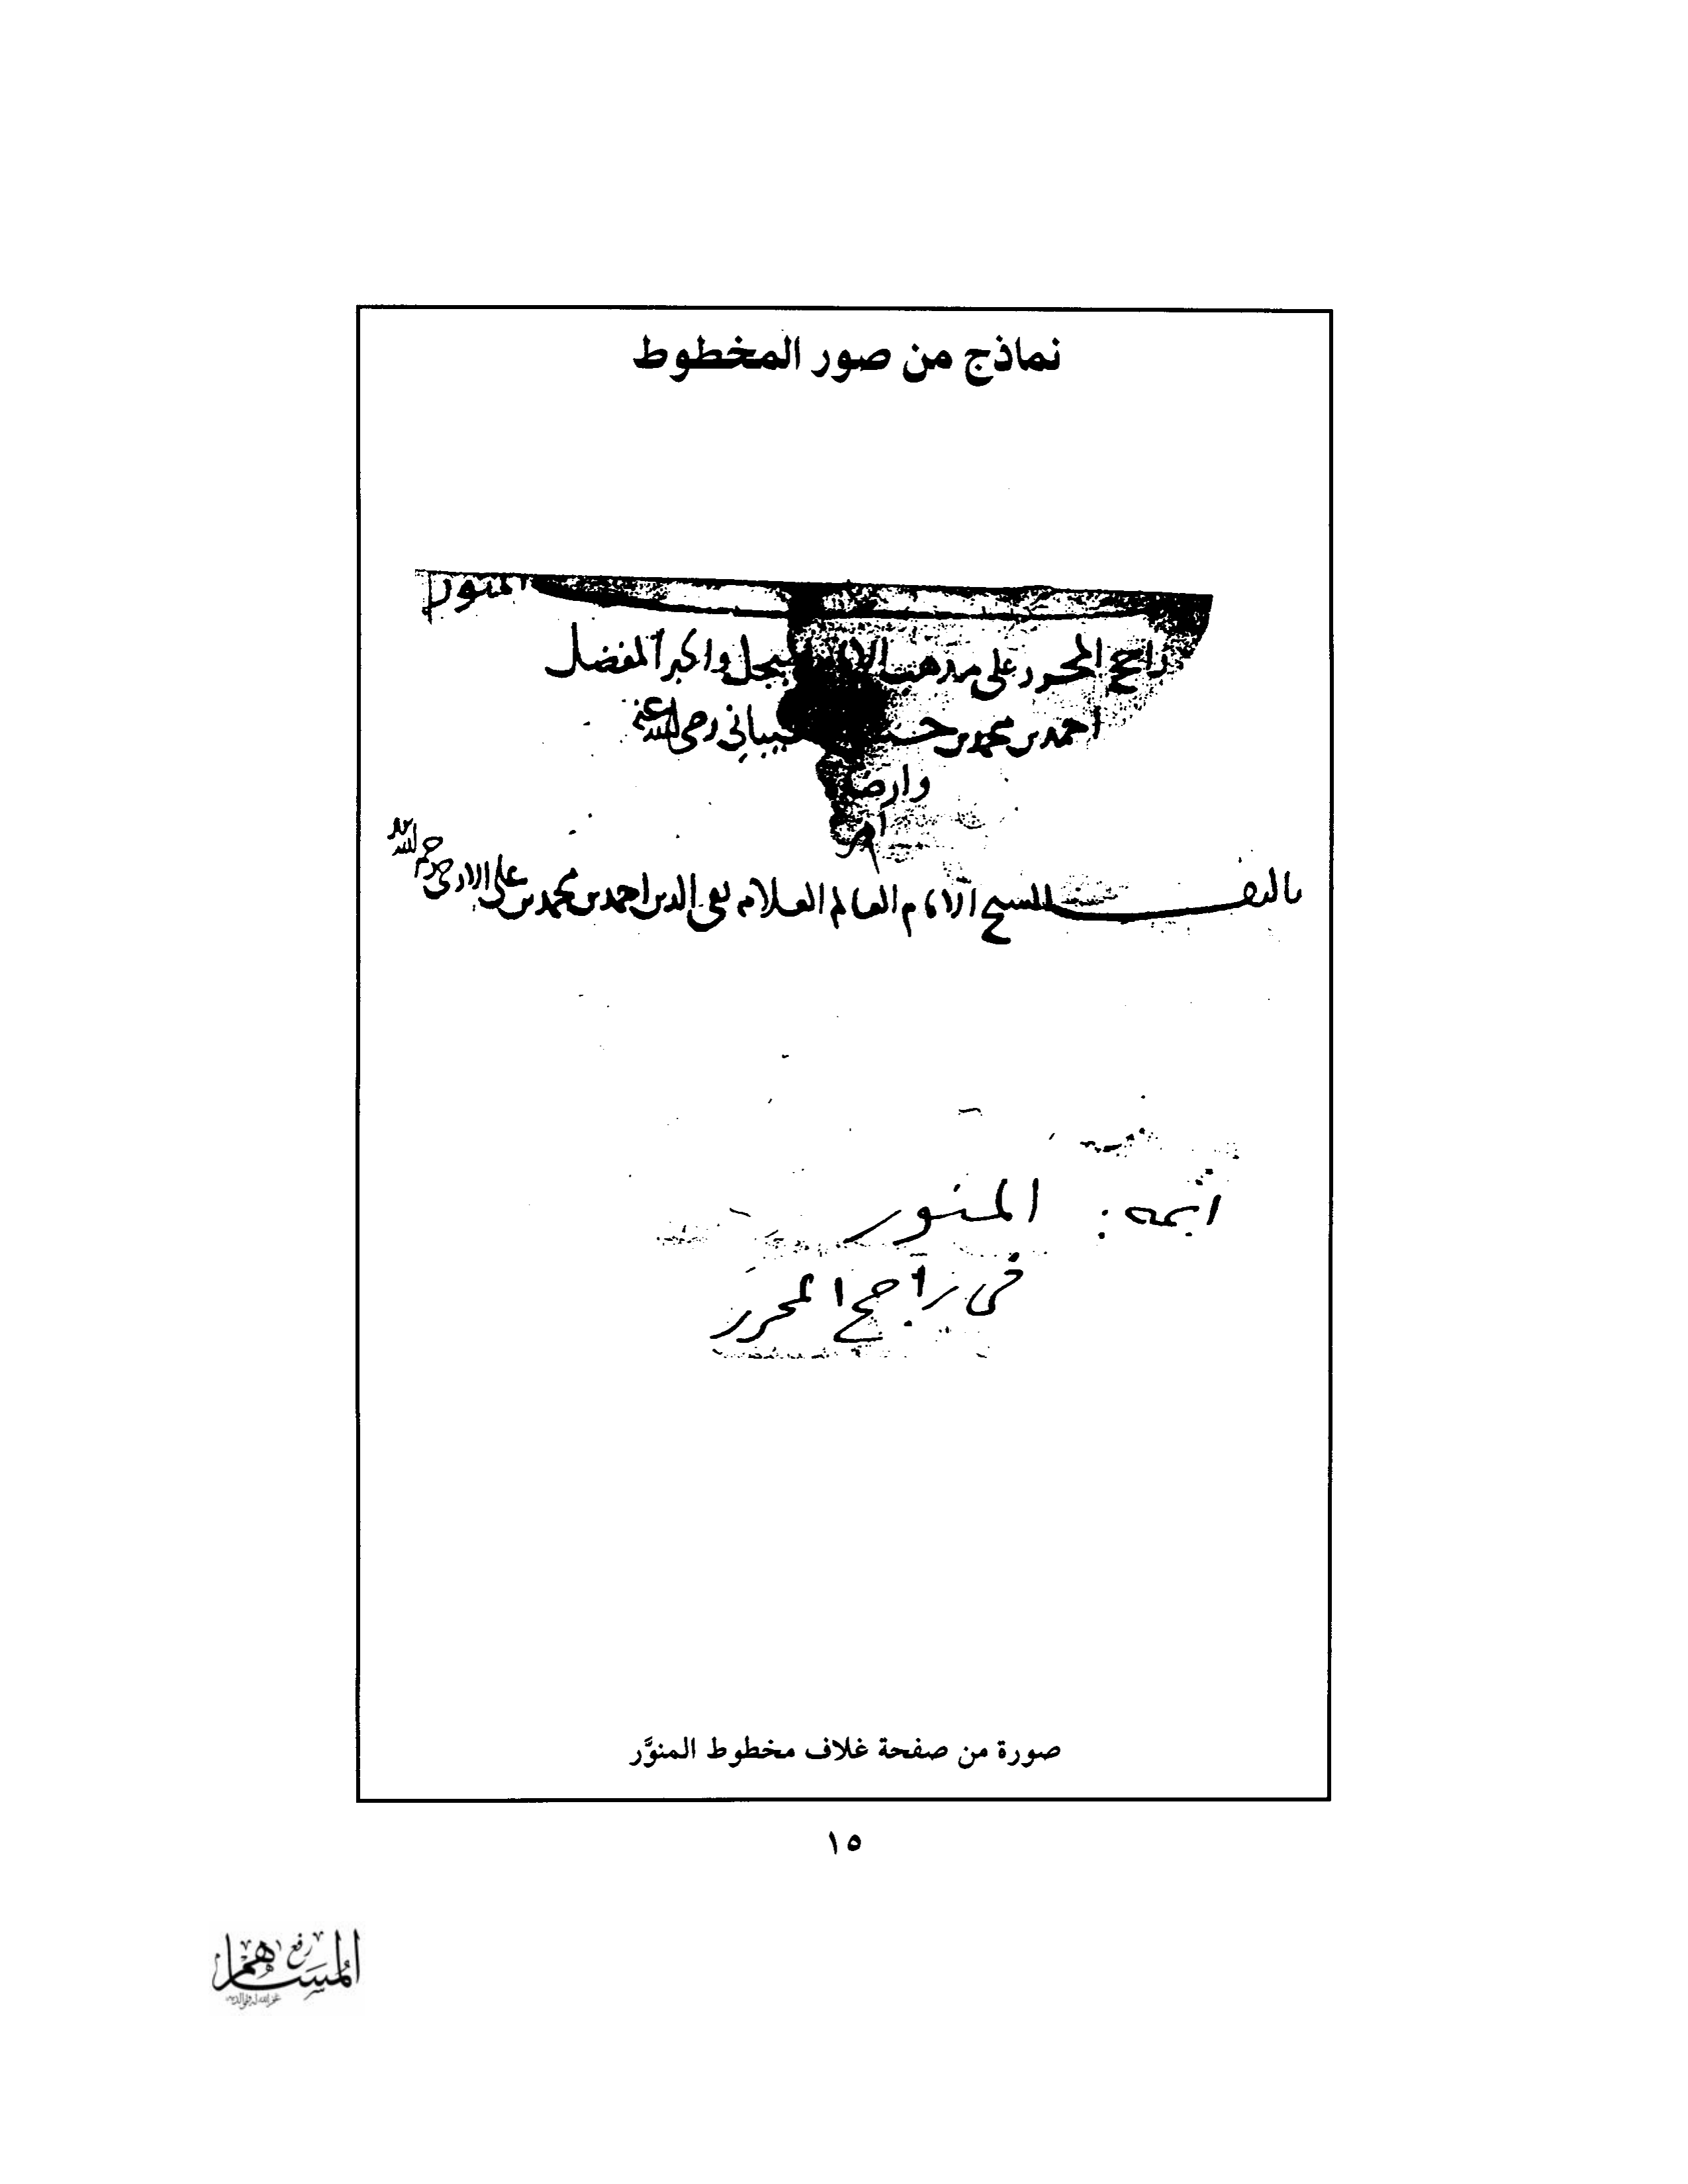 نماذج من صور المخطوط
المنور
راجح المحرر على مذهب الامام المبجل والحبر المفضل
احمد بن محمد بن حنبل الشيباني رضي الله عنه
وارضاه
تاليف الشيخ الامام العالم العلامه تقي الدين احمد بن محمد بن علي الادمي رحمه الله
اسمه: المنور
في راجح المحرر
صورة من صفحة غلاف مخطوط المنوَّر
١٥
رفع المساهم